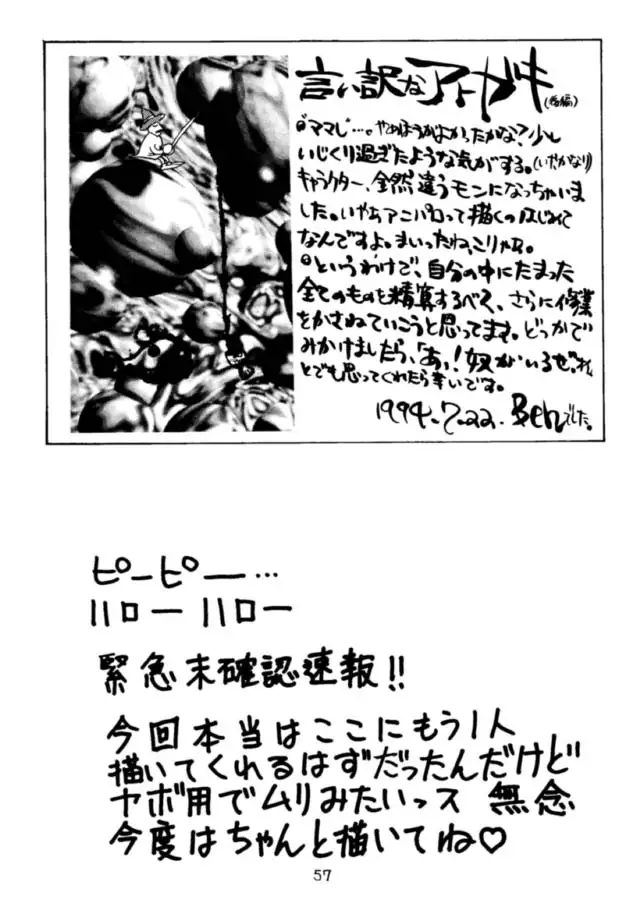 言い訳なアトガキ(後編)
◎"ママレ"…。やめほうがよかったかな?少し
いじくり過ぎたような気がする。(いやかなり)
キャラクター、全然違うモンになっちゃいま
した。いやぁアニパロって描くのはじめて
なんですよ。まいったね、こりゃぁ。
◎というわけで、自分の中にたまった
全てのものを精算するべく、さらに修業
をかさねていこうと思ってます。どっかで
みかけましたら、「あ!奴がいるぜ。」
とでも思ってくれたら幸いです。
1994.7.22. Benでした。
ピーピー…
ハローハロー
緊急未確認速報!!
今回本当はここにもう1人
描いてくれるはずだったんだけど
ヤボ用でムリみたいっス 無念
今度はちゃんと描いてね♡
57